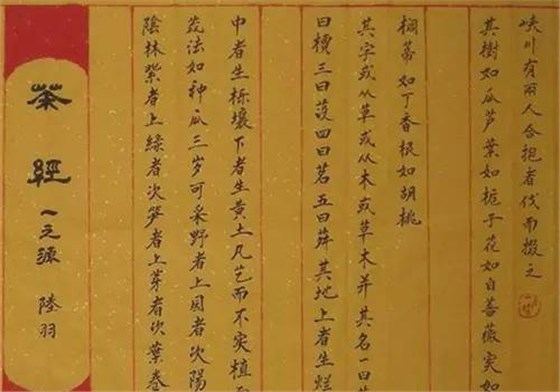 峽川有兩人合抱者伐而掇之
其樹如瓜芦葉如梔子花如白薔薇实如
櫚蒂如丁香根如胡桃
其字或从草或从木或草木并其名一曰
曰檟三曰蔎四曰茗五曰荈其地上者生爛
中者生栎壤下者生黄土凡艺而不实植而
茂法如种瓜三岁可采野者上园者次陽
陰林紫者上緑者次笋者上芽者次葉卷
茶經 一之源 陸羽